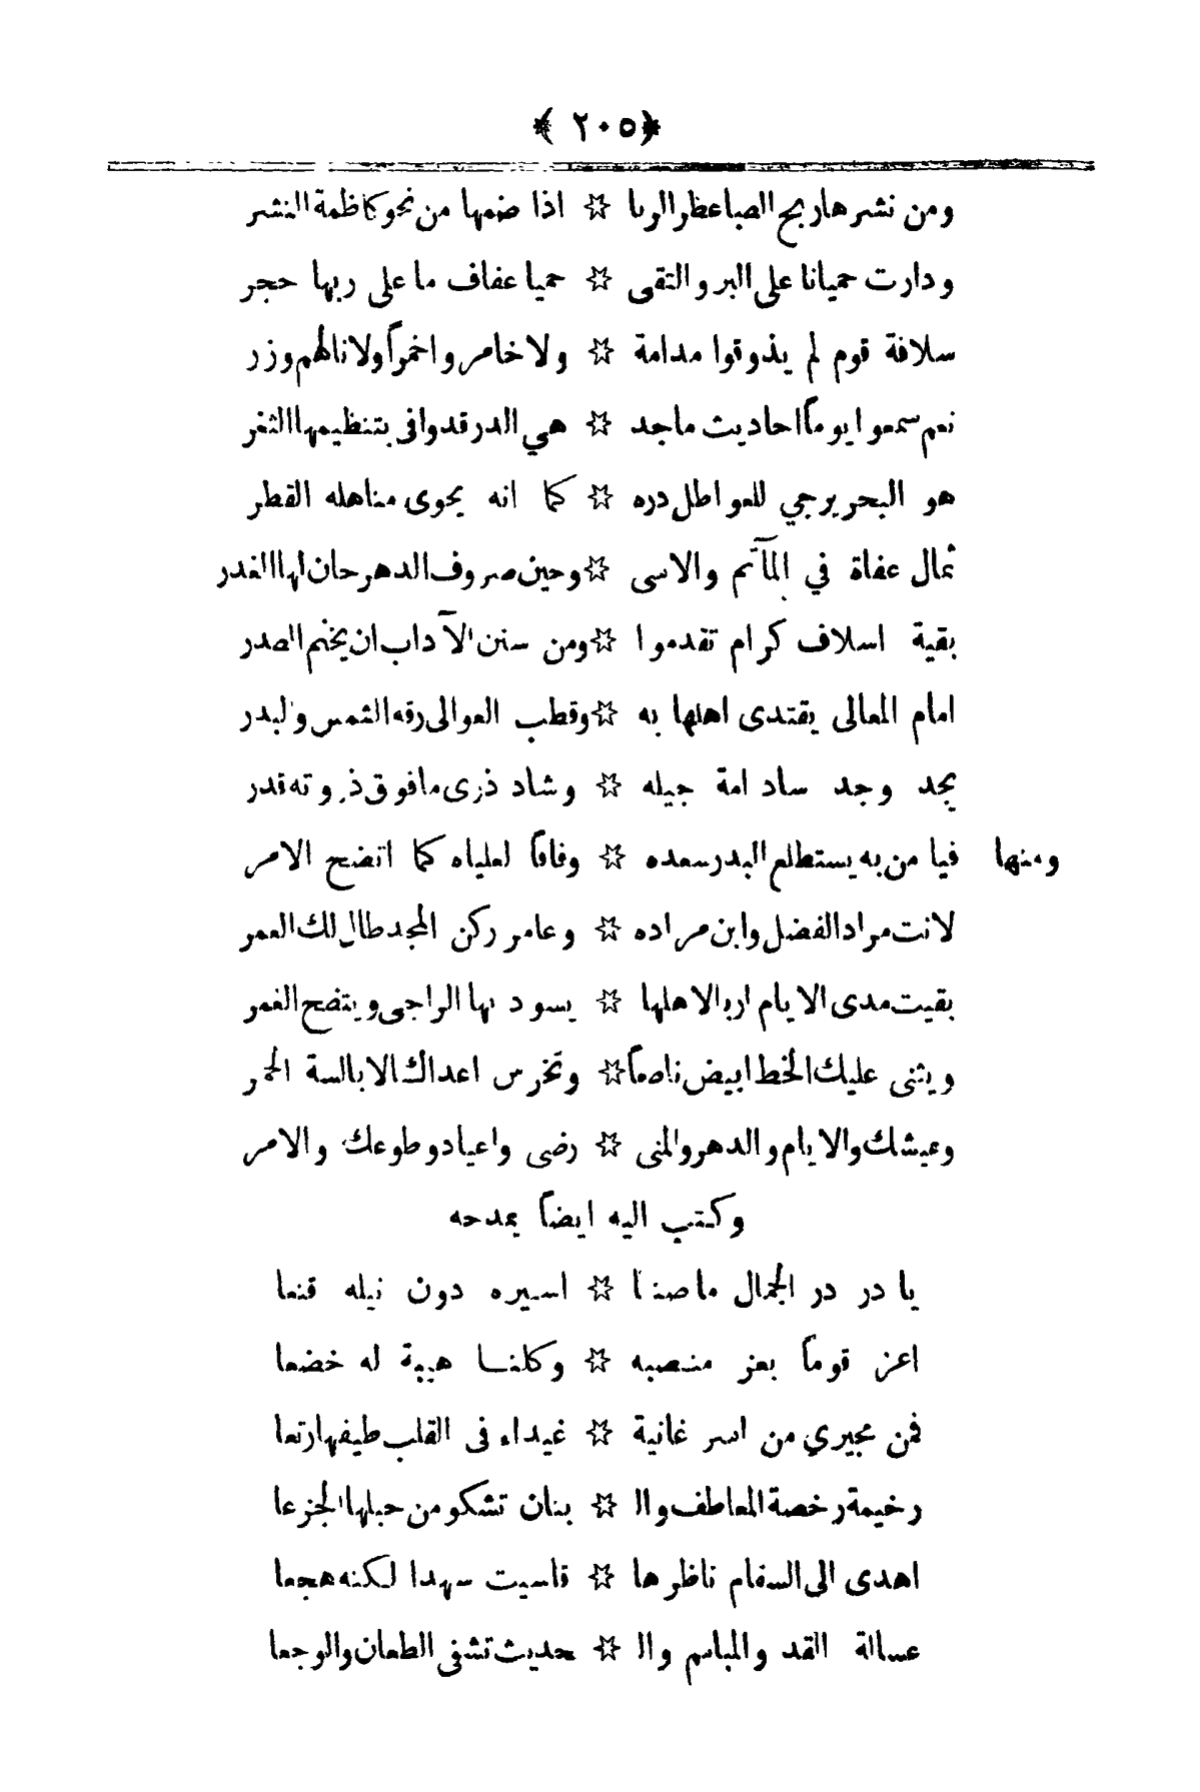 ﴿ ٢٠٥ ﴾
ومن نشرها ريح الصبا عطر الربا ☆ اذا ضمها من نحو كاظمة النشر
ودارت حميانا على البر والتقى ☆ حميا عفاف ما على ربها حجر
سلافة قوم لم يذوقوا مدامة ☆ ولا خامروا خمراً ولا نالهم وزر
نعم سمعوا يوماً احاديث ماجد ☆ هي الدر قد وافى بتنظيمها الثغر
هو البحر يرجي للعواطل دره ☆ كما انه يحوى مناهله القطر
ثمال عفاة في المآتم والاسى ☆ وحين صروف الدهر حان لها الغدر
بقية اسلاف كرام تقدموا ☆ ومن سنن الآداب ان يختم الصدر
امام المعالى يقتدى اهلها به ☆ وقطب العوالى رقه الشمس والبدر
بجد وجد ساد امة جيله ☆ وشاد ذرى ما فوق ذروته قدر
ومنها فيا من به يستطلع البدر سعده ☆ وفاقاً لعلياه كما اتضح الامر
لانت مراد الفضل وابن مراده ☆ وعامر ركن المجد طال لك العمر
بقيت مدى الايام اربا لاهلها ☆ يسود بها الراجى ويتضح الغمر
ويثنى عليك الخط ابيض ناصعاً ☆ وتخرس اعداك الا بالسة الحمر
وعيشك والايام والدهر والمنى ☆ رضى واعياد وطوعك والامر
وكتب اليه ايضاً يمدحه
يا در در الجمال ما صنعا ☆ اسيره دون نيله قنعا
اعز قوماً بعز منصبه ☆ وكلنا هيبة له خضعا
فمن مجيري من اسر غانية ☆ غيداء فى القلب طيفها رتعا
رخيمة رخصة المعاطف وال ☆ بنان تشكو من حبلها الجزعا
اهدى الى السقام ناظرها ☆ قاسيت سهدا لكنه هجعا
عسالة القد والمباسم وال ☆ حديث تشفى الطعان والوجعا